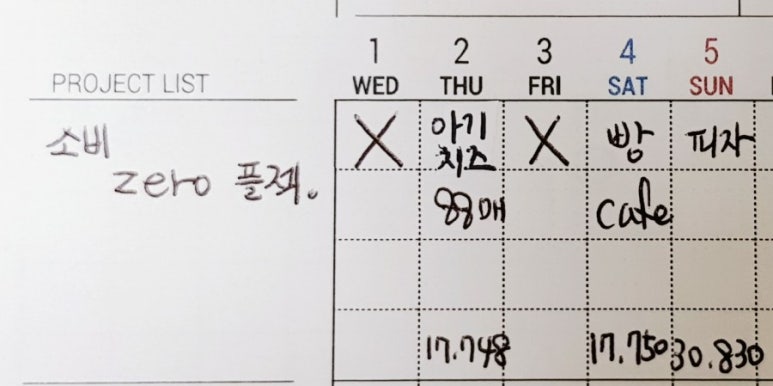 1 2 3 4 5
PROJECT LIST WED THU FRI SAT SUN
소비
zero 플젝.
X 아기 치즈 X 빵 피자
88매 cafe
17.748 17.750 30.830